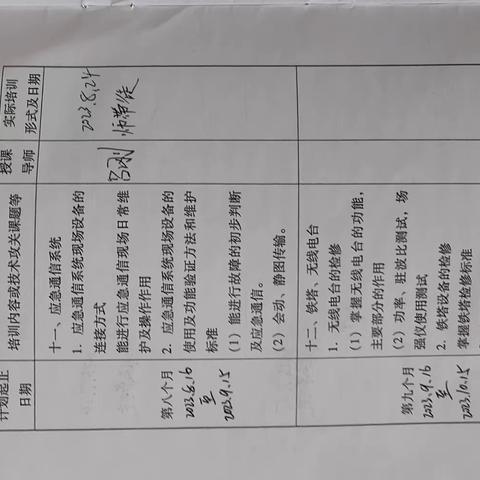 计划起止
日期
培训内容或技术攻关课题等
授课
导师
实际培训
形式及日期
第八个月
2023.8.16
至
2023.9.15
十一、应急通信系统
1. 应急通信系统现场设备的
连接方式
能进行应急通信现场日常维
护及操作作用
2. 应急通信系统现场设备的
使用及功能验证方法和维护
标准
（1）能进行故障的初步判断
及应急通信。
（2）会动、静图传输。
2023.8.24
师带徒
第九个月
2023.9.16
至
2023.10.15
十二、铁塔、无线电台
1. 无线电台的检修
（1）掌握无线电台的功能，
主要部分的作用
（2）功率、驻波比测试，场
强仪使用测试
2. 铁塔设备的检修
掌握铁塔检修标准